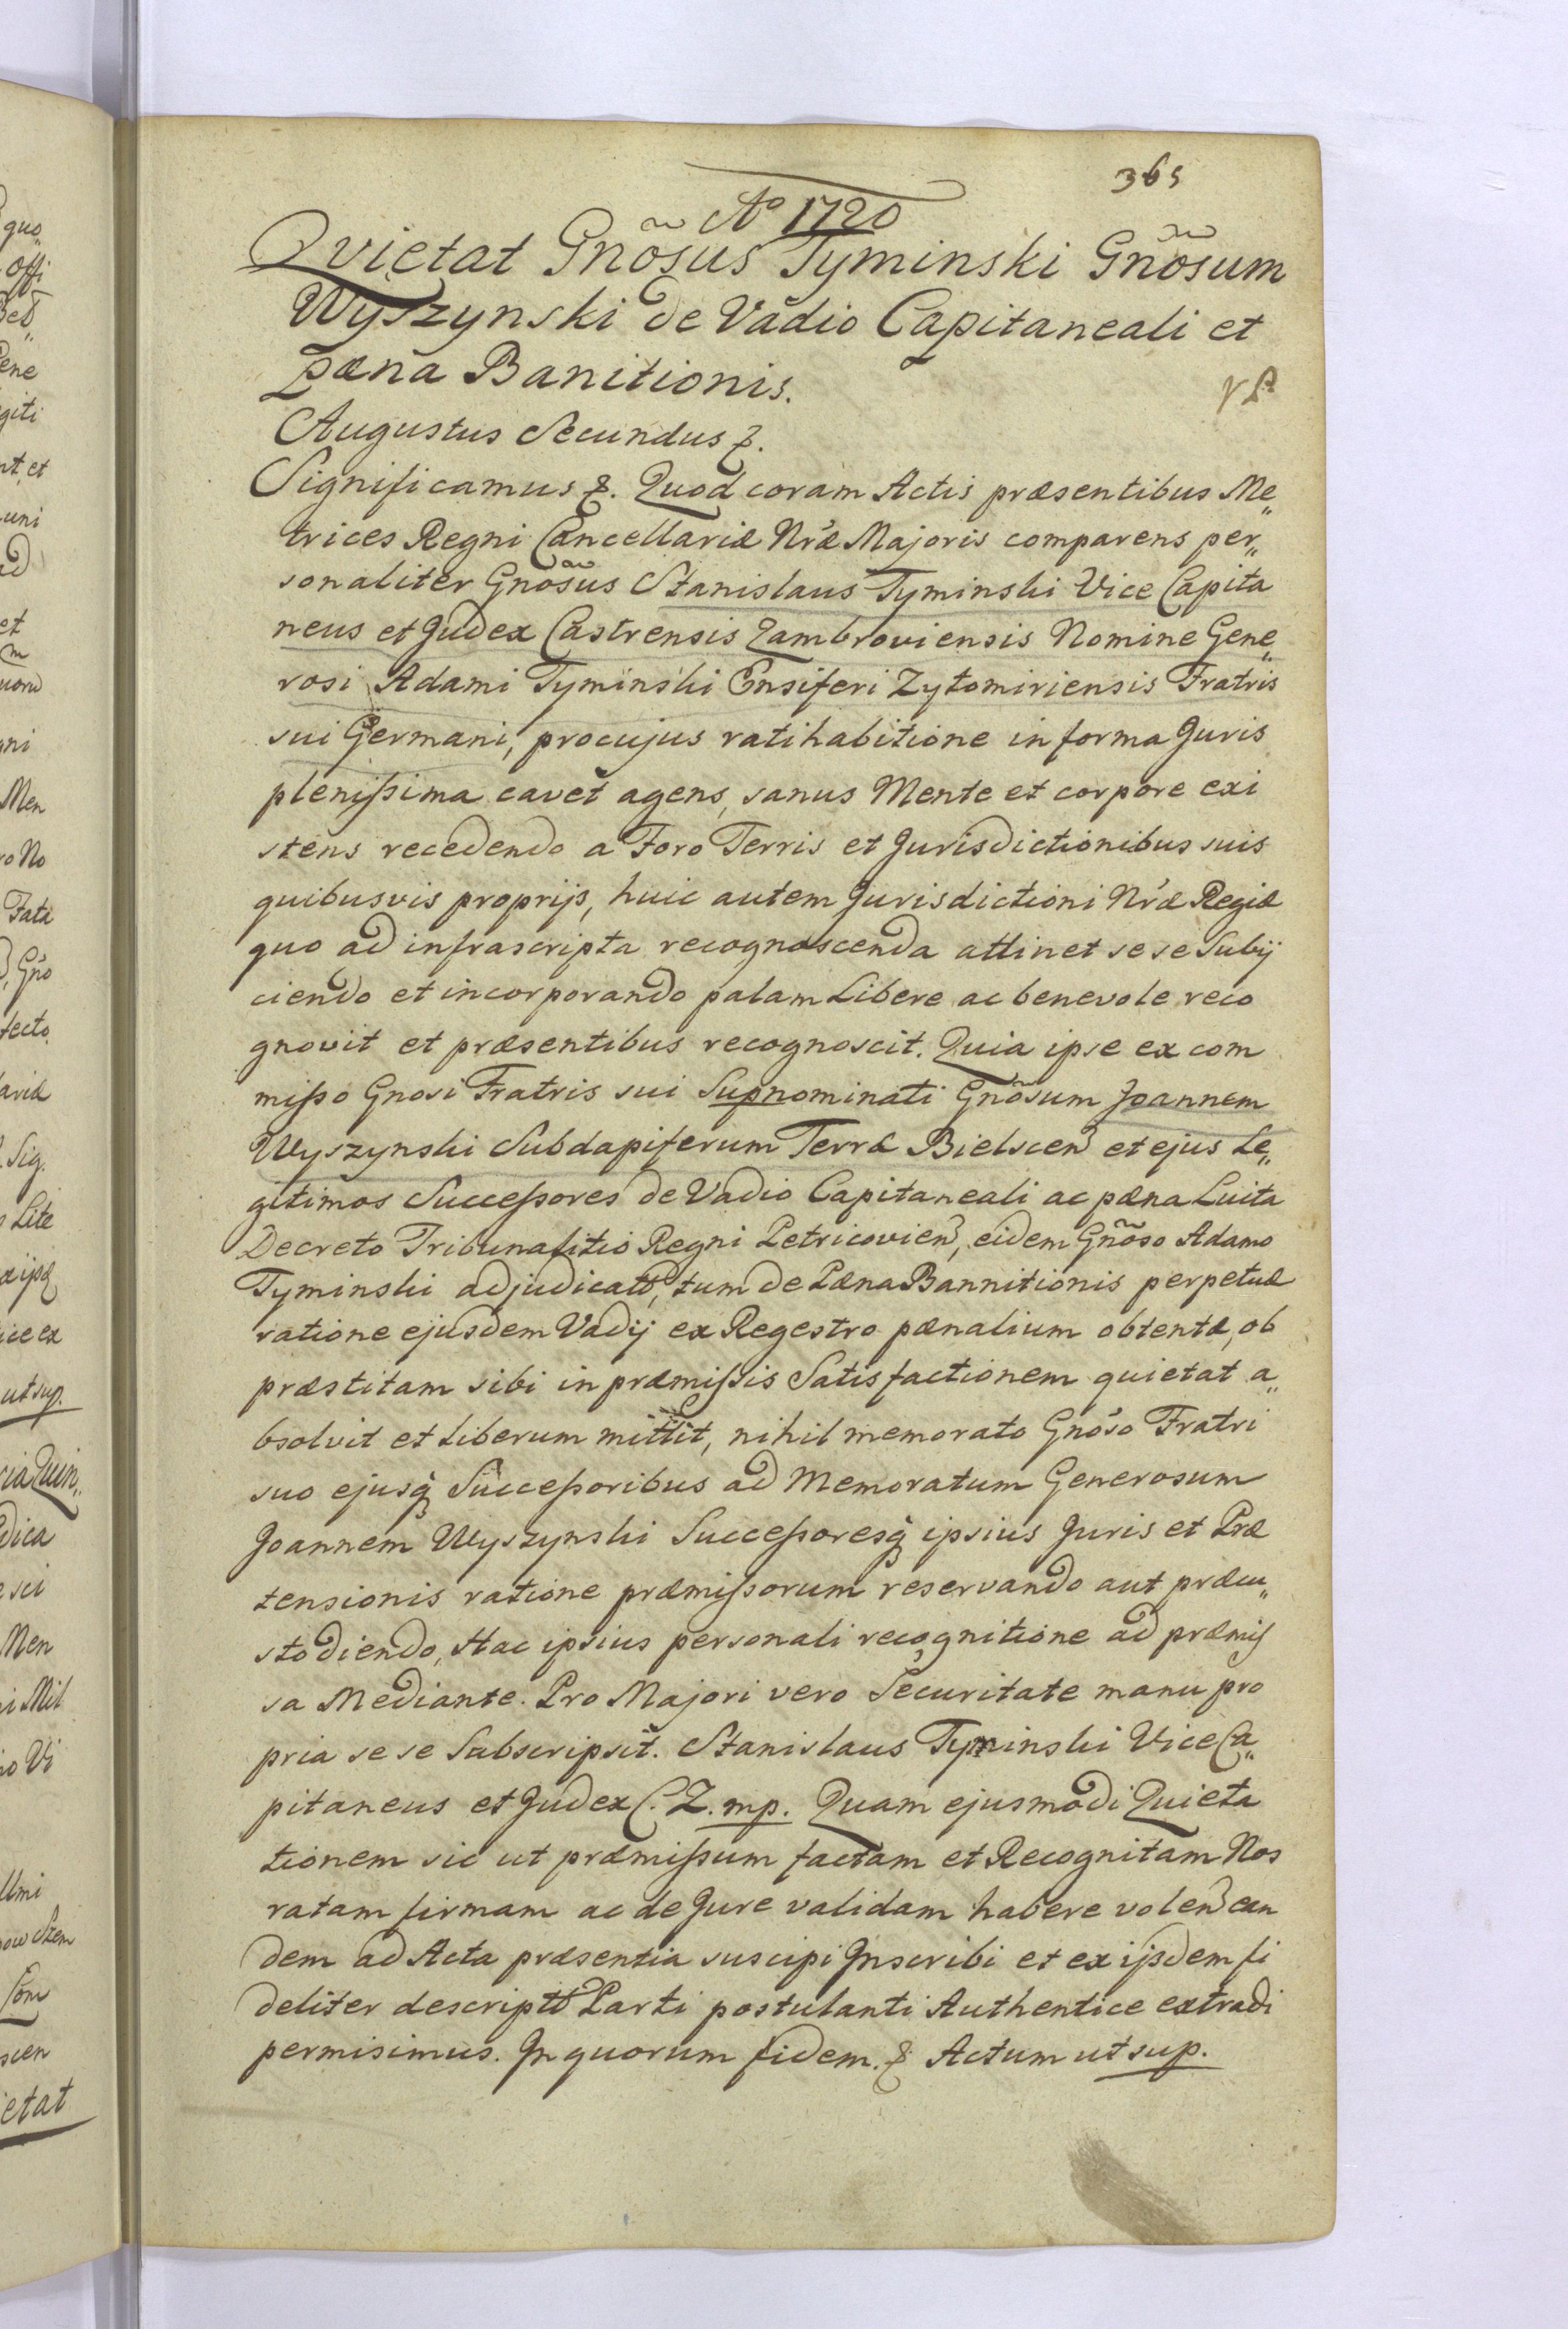 365
Aº 1720
Qvietat Gnõsus Tyminski Gnõsum
Wyszynski de Vadio Capitaneali et
pæna Banitionis.
Augustus Secundus &.
Significamus &. Quod coram Actis præsentibus Me„
trices Regni Cancellariæ Nræ Majoris comparens per„
sonaliter Gnõsus Stanislaus Tyminski Vice Capita
neus et Judex Castrensis Zambroviensis Nomine Gene„
rosi Adami Tyminski Ensiferi Zytomiriensis Fratris
sui Germani, procujus ratihabitione in forma Juris
plenissima cavet agens, sanus Mente et corpore exi
stens recedendo a Foro Terris et Jurisdictionibus suis
quibusvis proprijs, huic autem Jurisdictioni Nræ Regiæ
quo ad infrascripta recognoscenda attinet se se Subij
ciendo et incorporando palam Libere ac benevole reco
gnovit et præsentibus recognoscit. Quia ipse ex com
misso Gnosi Fratris sui Supnominati Gnõsum Joannem
Wyszynski Subdapiferum Terræ Bielscen et ejus Le„
gitimos Successores de Vadio Capitaneali ac pæna Luita
Decreto Tribunalitio Regni Petricovien, eidem Gnõso Adamo
Tyminski adjudicat, tum de Pæna Bannitionis perpetuæ
ratione ejusdem Vadij ex Regestro pænalium obtentæ, ob
præstitam sibi in præmissis Satisfactionem quietat a„
bsolvit et Liberum mittit, nihil memorato Gnoso Fratri
suo ejusq Successoribus ad Memoratum Generosum
Joannem Wyszynski Successoresq ipsius Juris et Præ
tensionis ratione præmissorum reservando aut præcu„
stodiendo, Hac ipsius personali recognitione ad præmis
sa Mediante. Pro Majori vero Securitate manu pro
pria se se Subscripsit. Stanislaus Tyminski Vice Ca„
pitaneus et Judex C. Z. mp. Quam ejusmodi Quieta
tionem sic ut præmissum factam et Recognitam Nos
ratam firmam ac de Jure validam habere volen ean
dem ad Acta præsentia suscipi Inscribi et ex ijsdem fi
deliter descript Parti postulanti Authentice extradi
permisimus. In quorum fidem. & Actum ut sup.